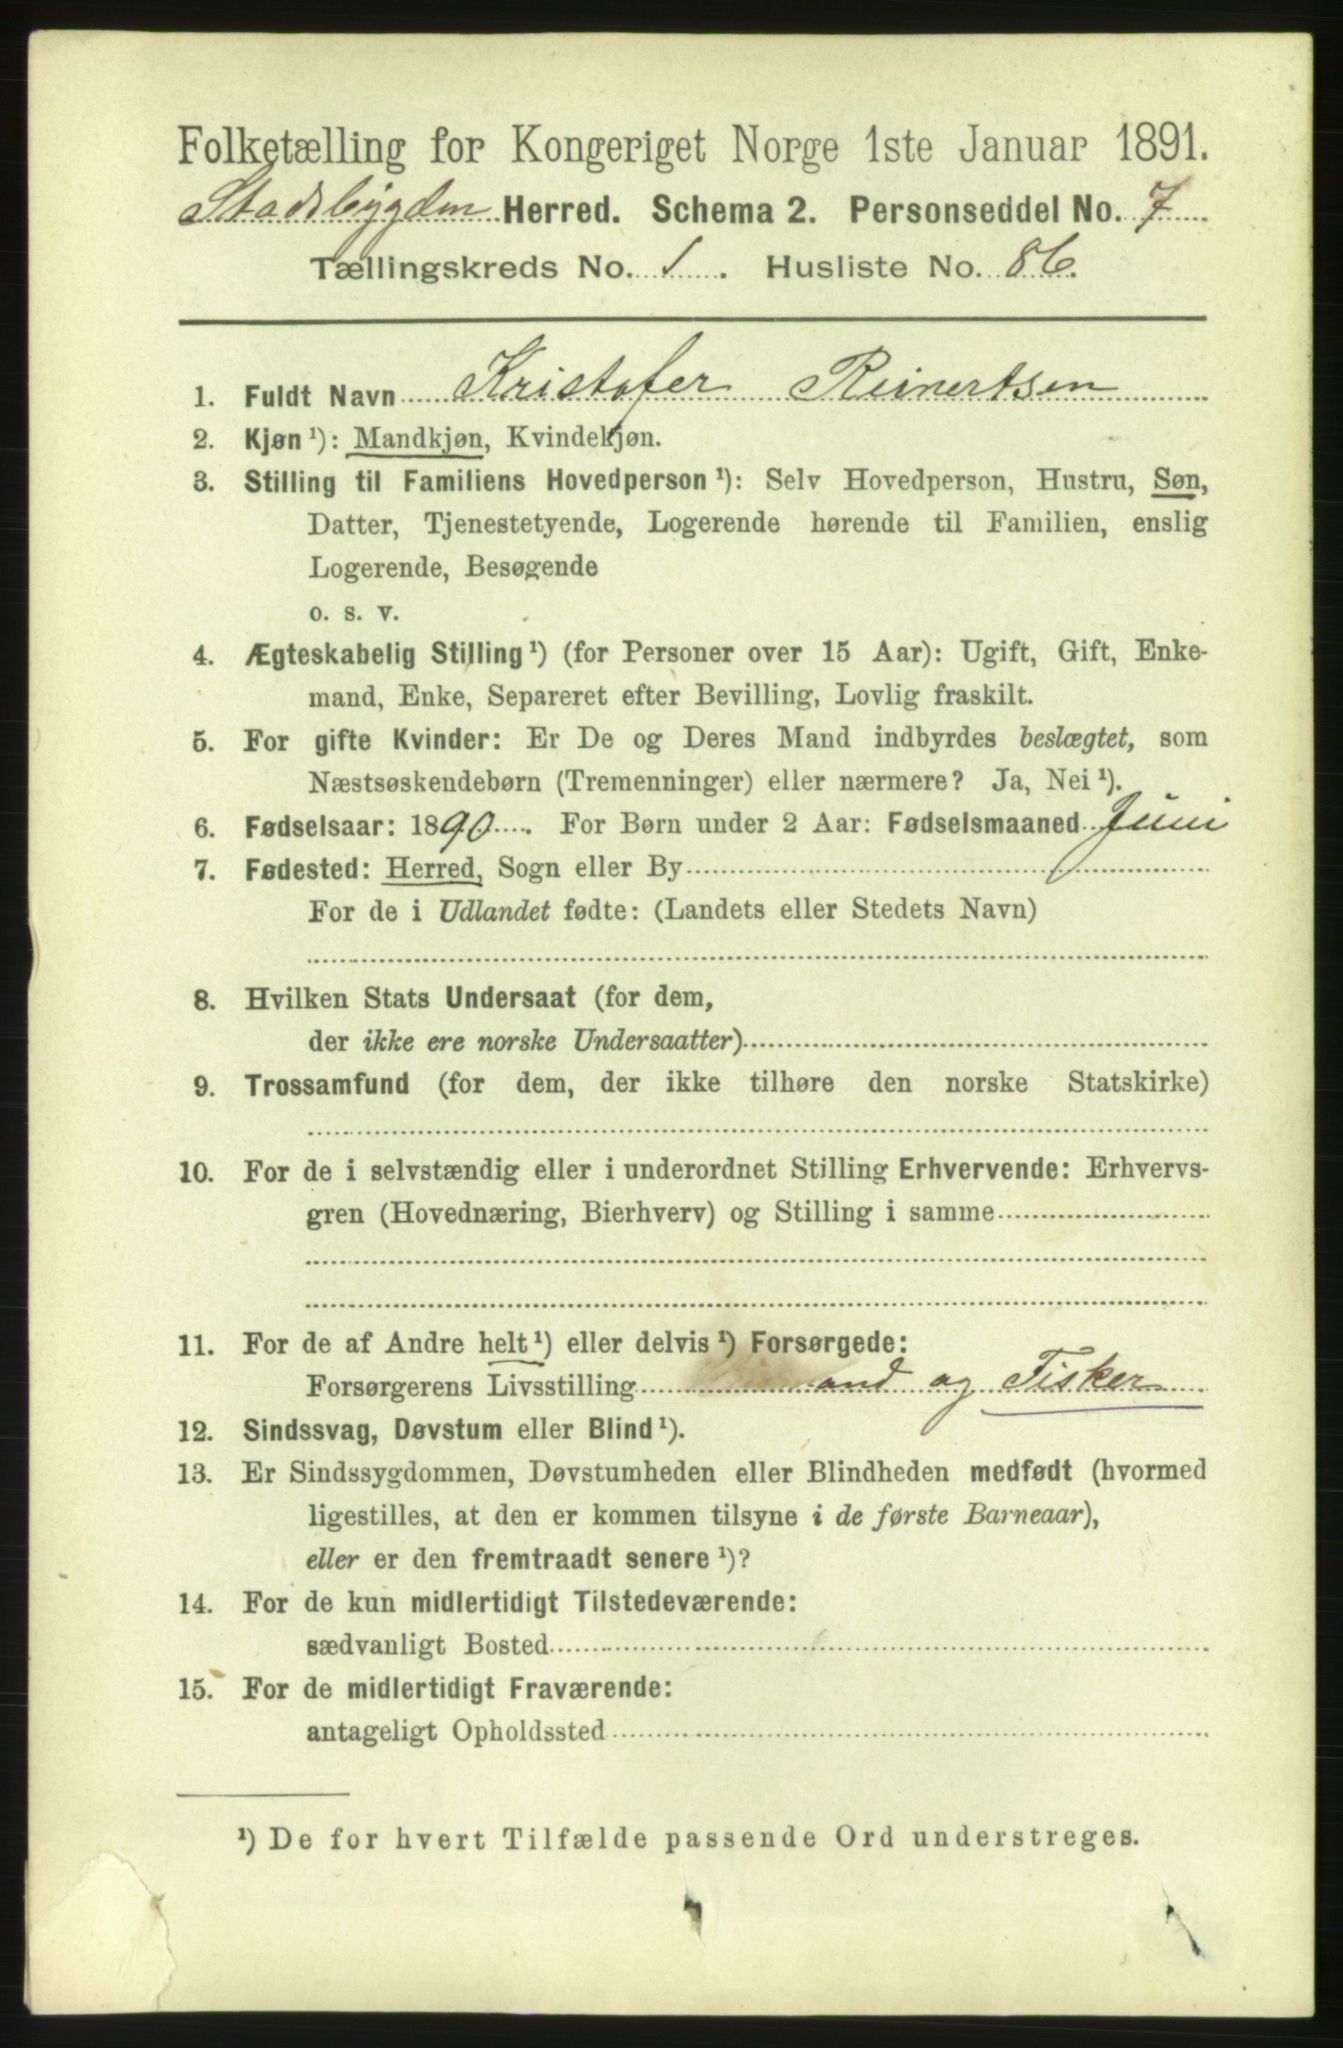 Folketælling for Kongeriget Norge 1ste Januar 1891.
Stadsbygden Herred. Schema 2. Personseddel No. 7
Tællingskreds No. 1. Husliste No. 86.
1. Fuldt Navn Kristofer Reinertsen
2. Kjøn ¹): Mandkjøn, Kvindekjøn.
3. Stilling til Familiens Hovedperson ¹): Selv Hovedperson, Hustru, Søn,
Datter, Tjenestetyende, Logerende hørende til Familien, enslig
Logerende, Besøgende
o. s. v.
4. Ægteskabelig Stilling ¹) (for Personer over 15 Aar): Ugift, Gift, Enke-
mand, Enke, Separeret efter Bevilling, Lovlig fraskilt.
5. For gifte Kvinder: Er De og Deres Mand indbyrdes beslægtet, som
Næstsøskendebørn (Tremenninger) eller nærmere? Ja, Nei ¹).
6. Fødselsaar: 1890. For Børn under 2 Aar: Fødselsmaaned Juni
7. Fødested: Herred, Sogn eller By
For de i Udlandet fødte: (Landets eller Stedets Navn)
8. Hvilken Stats Undersaat (for dem,
der ikke ere norske Undersaatter)
9. Trossamfund (for dem, der ikke tilhøre den norske Statskirke)
10. For de i selvstændig eller i underordnet Stilling Erhvervende: Erhvervs-
gren (Hovednæring, Bierhverv) og Stilling i samme
11. For de af Andre helt ¹) eller delvis ¹) Forsørgede:
Forsørgerens Livsstilling og Fisker
12. Sindssvag, Døvstum eller Blind ¹).
13. Er Sindssygdommen, Døvstumheden eller Blindheden medfødt (hvormed
ligestilles, at den er kommen tilsyne i de første Barneaar),
eller er den fremtraadt senere ¹)?
14. For de kun midlertidigt Tilstedeværende:
sædvanligt Bosted
15. For de midlertidigt Fraværende:
antageligt Opholdssted
¹) De for hvert Tilfælde passende Ord understreges.